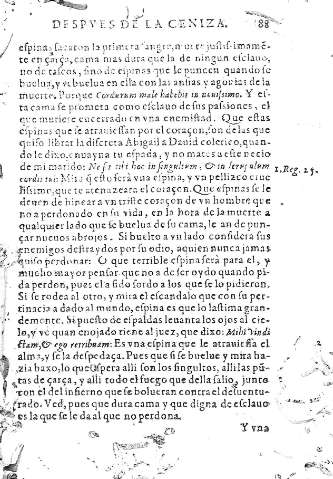 DESPVES DE LA CENIZA. 88
espinas sacaron la primera sangre, ... justissimamẽ
te en çarça, cama mas dura que la de ningun esclauo,
no de tascos, sino de espinas que le puncen quando se
buelua, y rebuelua en ella con las ansias y agonias de la
muerte. Porque Cordurum male habebit in nouissimo. Y es
ta cama se prometa como esclauo de sus passiones, el
que muriere encerrado en vna enemistad. Que estas
espinas que se atrauiessan por el coraçon, son de las que
quiso librar la discreta Abigail a Dauid colerico, quan
do le dixo, enuayna tu espada, y no mates a este necio
de mi marido: Ne sit tibi hoc in singultum, & in scrupulum
cordis tui: Mira q̃ esto será vna espina, y vn pellizco crue
lissimo, que te atenazeara el coraçon. Que espinas se le
deuen de hincar a vn triste coraçon de vn hombre que
no a perdonado en su vida, en la hora de la muerte a
qualquier lado que se buelua de su cama, le an de pun-
çar nueuos abrojos. Si buelto a vn lado considera sus
enemigos destraydos por su odio, a quien nunca jamas
quiso perdonar: O que terrible espina será para el, y
mucho mayor pensar que no a de ser oydo quando pi-
da perden, pues el a sido sordo a los que se lo pidieron.
Si se rodea al otro, y mira el escandalo que con su per-
tinacia a dado al mundo, espina es que lo lastima gran-
demente. Si puesto de espaldas leuanta los ojos al cie-
lo, y vè quan enojado tiene al juez, que dixo: Mihi vindi
ctam, & ego retribuam: Es vna espina que le atrauiessa el
alma, y se la despedaça. Pues que si se buelue y mira ha-
zia baxo, lo que espera alli son los singultos, alli las pũ-
tas de çarça, y alli todo el fuego que della salio, junto
con el del infierno que se bolueran contra el desuentu-
rado. Ved, pues que dura cama y que digna de esclauo
es la que se le da al que no perdona.
Y vna
1. Reg. 25.